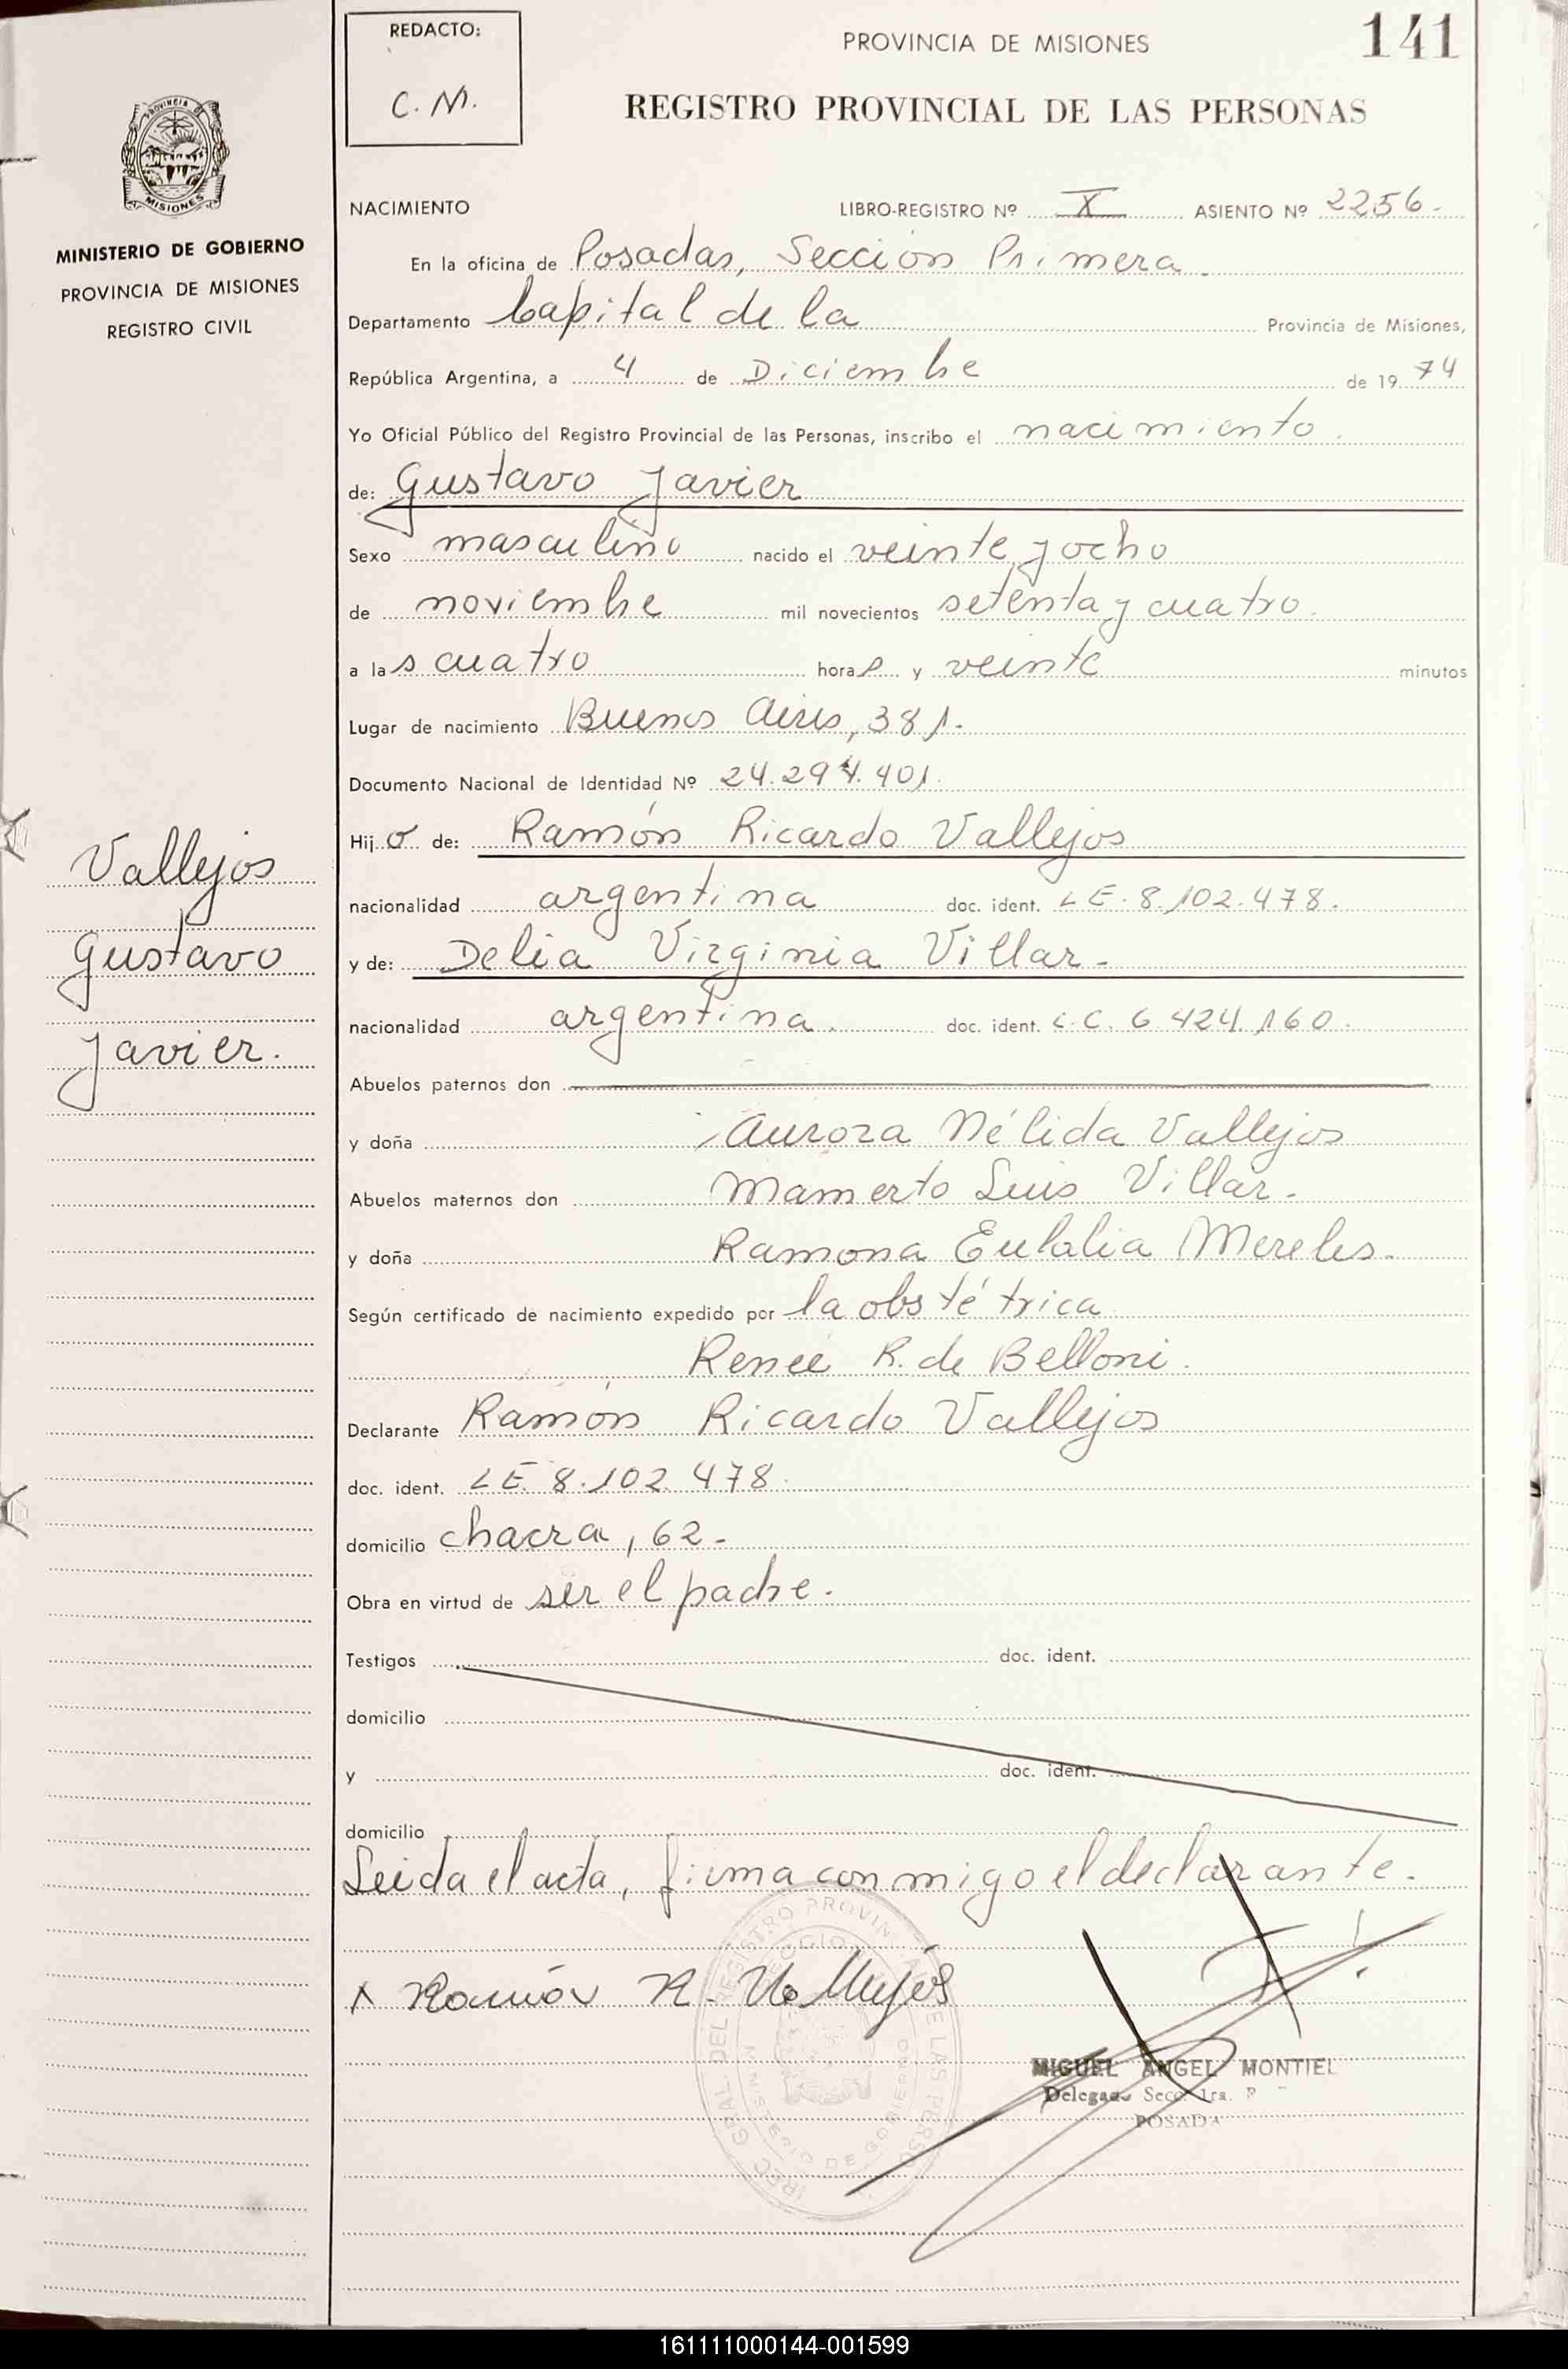 REDACTO:
C. M.
PROVINCIA DE MISIONES
141
REGISTRO PROVINCIAL DE LAS PERSONAS
PROVINCIA DE
MISIONES
MINISTERIO DE GOBIERNO
PROVINCIA DE MISIONES
REGISTRO CIVIL
NACIMIENTO LIBRO-REGISTRO Nº X ASIENTO Nº 2256.
En la oficina de Posadas, Sección Primera.
Departamento Capital de la Provincia de Misiones,
República Argentina, a 4 de Diciembre de 19 74
Yo Oficial Público del Registro Provincial de las Personas, inscribo el nacimiento.
de: Gustavo Javier
Sexo masculino nacido el veinte y ocho
de noviembre mil novecientos setenta y cuatro.
a las cuatro horas y veinte minutos
Lugar de nacimiento Buenos Aires, 381.
Documento Nacional de Identidad Nº 24.294.401.
Hijo de: Ramón Ricardo Vallejos
nacionalidad argentina doc. ident. LE. 8.102.478.
y de: Delia Virginia Villar.
nacionalidad argentina. doc. ident. L.C. 6.424.160.
Abuelos paternos don
y doña Aurora Nélida Vallejos
Abuelos maternos don Mamerto Luis Villar.
y doña Ramona Eulalia Mereles.
Según certificado de nacimiento expedido por la obstétrica
Renée R. de Belloni.
Declarante Ramón Ricardo Vallejos
doc. ident. LE. 8.102.478.
domicilio chacra, 62.
Obra en virtud de ser el padre.
Testigos doc. ident.
domicilio
y doc. ident.
domicilio
Leida el acta, firma conmigo el declarante.
x Ramón R. Vallejos
MIGUEL ANGEL MONTIEL
Delegado Secc. 1ra.
POSADA
Vallejos
Gustavo
Javier.
161111000144-001599